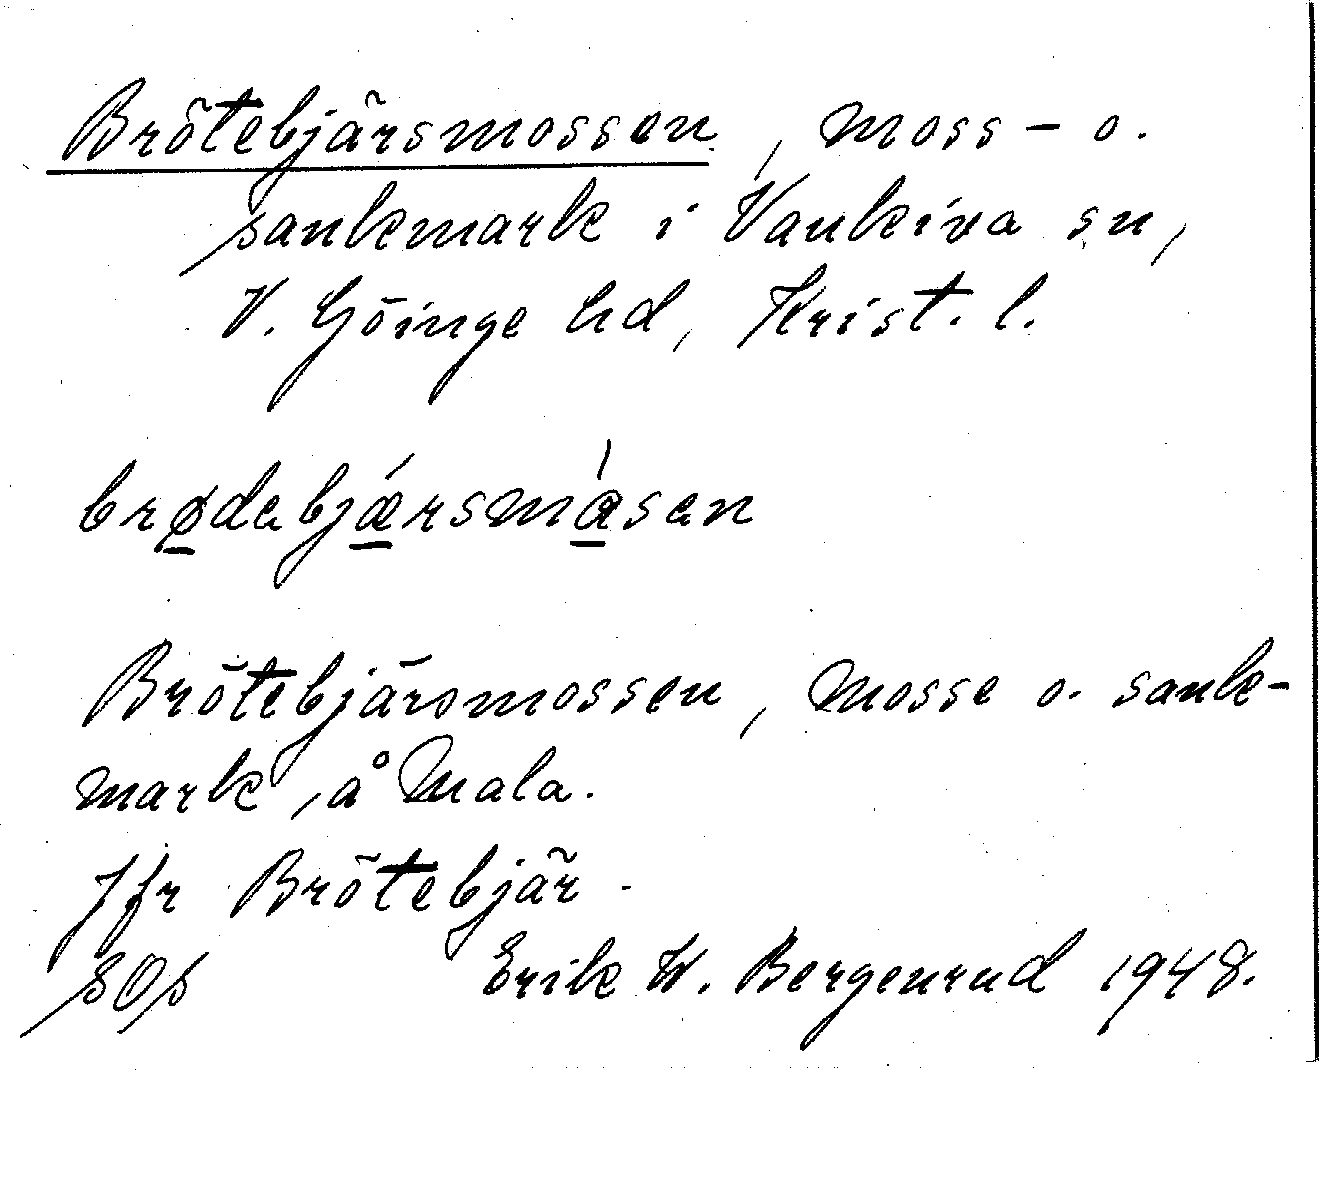 Brötebjärsmossen, moss- o.
sankmark i Vankiva sn,
V. Göinge hd, Krist. l.
brø̱debjǽ̱rsmà̱sen
Brötebjärsmossen, mosse o. sank-
mark, å Mala.
Jfr Brötebjär.
SOS Erik W. Bergenrud 1948.